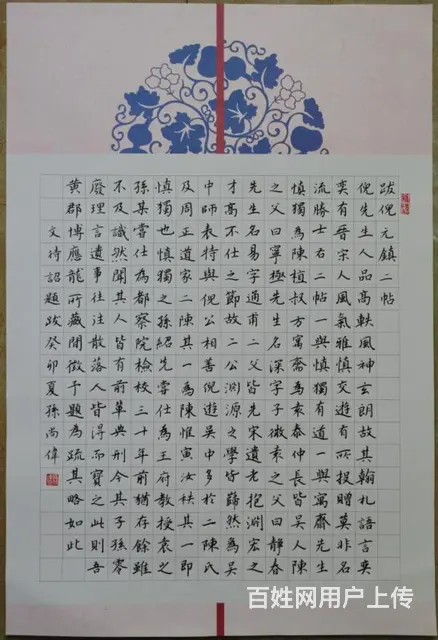 跋倪元鎮二帖
倪先生人品高軼風神玄朗故其翰札語言奕
奕有晉宋人風氣雅慎交遊有所投贈莫非名
流勝士右二帖一與慎獨有道一與寓齋先生
慎獨為陳植叔方寓齋為袁泰仲長皆吳人陳
之父曰寧極先生名深字子微袁之父曰靜春
先生名易字通甫二父皆先宋遺老抱淵宏之
才高不仕之節故二公淵源之學皆蔚然為吳
中師表特與倪公相善倪遊吳中多於二陳氏
及周正道家二陳其一為陳惟寅汝秩其一即
慎獨也慎獨之孫紹先嘗仕為王府教授袁之
孫某嘗仕為都察院檢校三十年前猶存餘雖
不及識然聞其人皆有前輩典刑今其子孫零
廢理言遺事往注散落人皆得而寶之此則吾
黃郡博應龍所藏閒徵予題為疏其略如此
文待詔題跋癸卯夏孫尚偉
百姓网用户上传